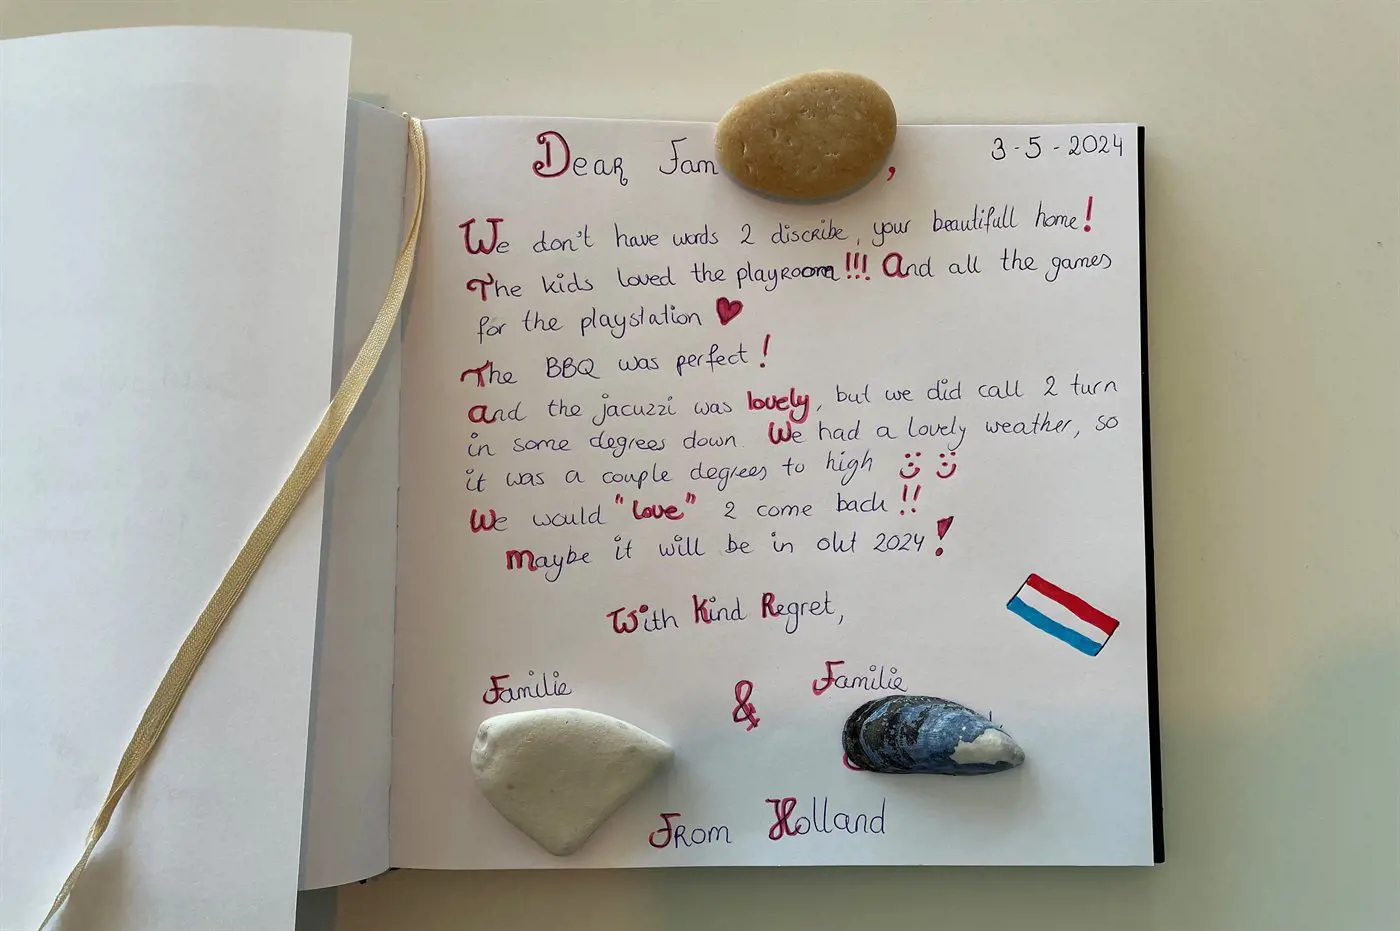 3-5-2024
Dear Fam ,
We don't have words 2 discribe, your beautifull home!
The kids loved the playroom!!! And all the games
for the playstation ♥
The BBQ was perfect!
And the jacuzzi was lovely, but we did call 2 turn
in some degrees down. We had a lovely weather, so
it was a couple degrees to high ☺ ☺
We would "love" 2 come back!!
Maybe it will be in okt 2024!
With Kind Regret,
Familie & Familie
From Holland